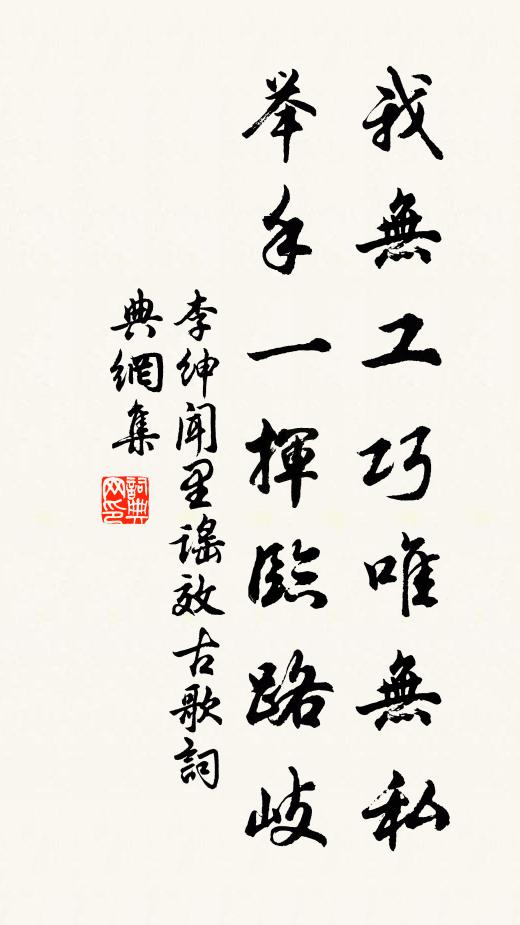 我無工巧唯無私
举手一揮臨路岐
李紳聞里謠效古歌詞
典網集
詞典网印